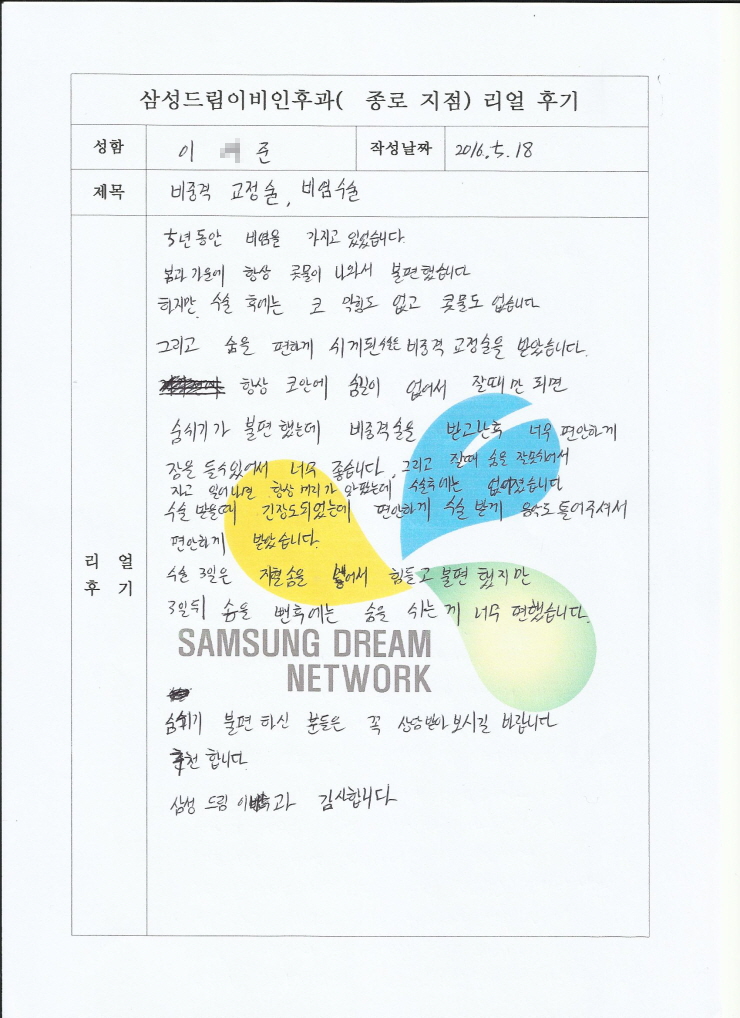 삼성드림이비인후과( 종로 지점) 리얼 후기
성함 이 준 작성날짜 2016.5.18
제목 비중격 교정술, 비염수술
5년동안 비염을 가지고 있었습니다.
봄과 가을에 항상 콧물이 나와서 불편했습니다
하지만, 수술 후에는 코 막힘도 없고 콧물도 없습니다
그리고 숨을 편하게 쉬게된 비중격 교정술을 받았습니다.
항상 코안에 숨길이 없어서 잘때만 되면
숨쉬기가 불편했는데 비중격술을 받고난후 너무 편안하게
잠을 들수있어서 너무 좋습니다, 그리고 잘때 숨을 잘못쉬어서
자고 일어나면 항상 머리가 아팠는데 수술후에는 없어졌습니다
수술 받을때 긴장도되었는데 편안하게 수술 받게 음악도 틀어주셔서
편안하게 받았습니다.
수술 3일은 지혈솜을 넣어서 힘들고 불편했지만
3일뒤 솜을 뺀후에는 숨을 쉬는게 너무 편했습니다.
리 얼
후 기
SAMSUNG DREAM
NETWORK
숨쉬기 불편하신 분들은 꼭 상담받아보시길 바랍니다
추천 합니다.
삼성 드림 이비과 감사합니다